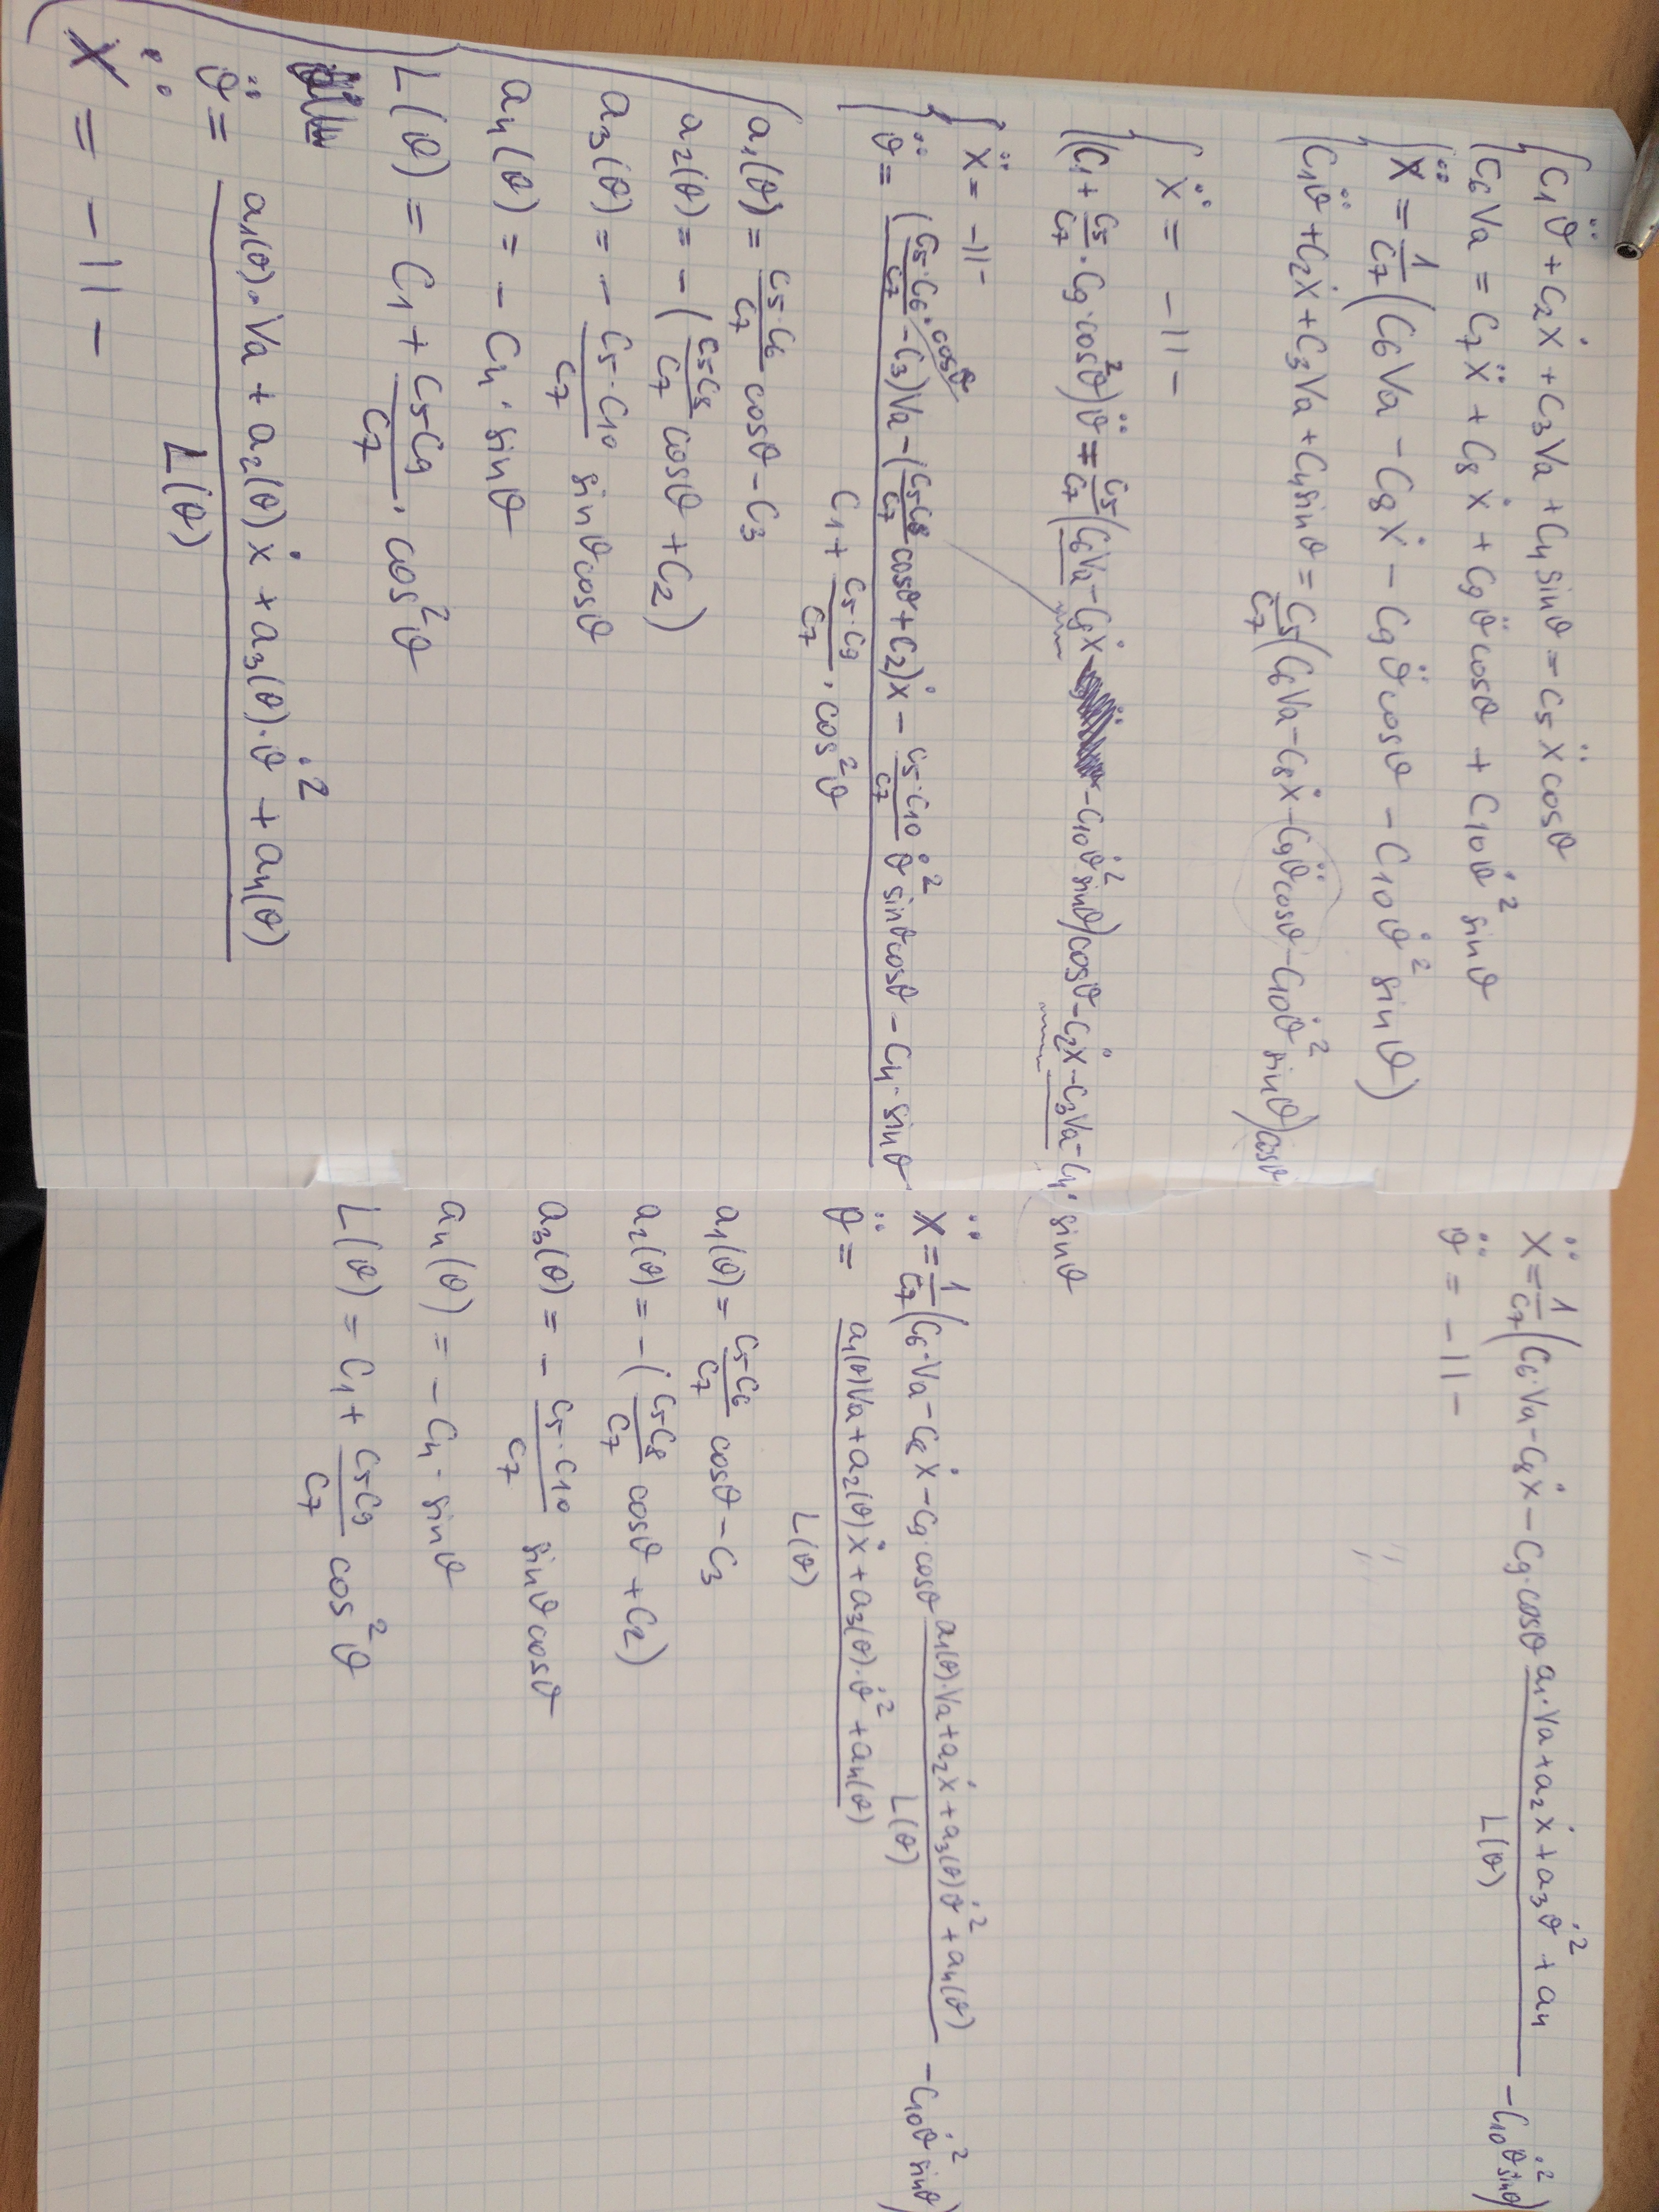 C₁ϑ̈ + C₂ẋ + C₃Va + C₄sinϑ = C₅ẍcosϑ
C₆Va = C₇ẍ + C₈ẋ + C₉ϑ̈cosϑ + C₁₀ϑ̇²sinϑ
ẍ = 1/C₇ (C₆Va - C₈ẋ - C₉ϑ̈cosϑ - C₁₀ϑ̇²sinϑ)
C₁ϑ̈ + C₂ẋ + C₃Va + C₄sinϑ = C₅/C₇ (C₆Va - C₈ẋ - C₉ϑ̈cosϑ - C₁₀ϑ̇²sinϑ)cosϑ
ẍ = -11-
(C₁ + C₅/C₇ · C₉·cos²ϑ)ϑ̈ = C₅/C₇ (C₆Va - C₈ẋ - C₁₀ϑ̇²sinϑ)cosϑ - C₂ẋ - C₃Va - C₄·sinϑ
ẍ = -11-
ϑ̈ = ((C₅·C₆/C₇ · cosϑ - C₃)Va - (C₅C₈/C₇ cosϑ + C₂)ẋ - C₅·C₁₀/C₇ ϑ̇²sinϑcosϑ - C₄·sinϑ) / (C₁ + C₅·C₉/C₇ · cos²ϑ)
a₁(ϑ) = C₅·C₆/C₇ cosϑ - C₃
a₂(ϑ) = -(C₅C₈/C₇ cosϑ + C₂)
a₃(ϑ) = - C₅·C₁₀/C₇ sinϑcosϑ
a₄(ϑ) = - C₄·sinϑ
L(ϑ) = C₁ + C₅C₉/C₇ · cos²ϑ
ϑ̈ = (a₁(ϑ)·Va + a₂(ϑ)ẋ + a₃(ϑ)·ϑ̇² + a₄(ϑ)) / L(ϑ)
ẍ = -11-
ẍ = 1/C₇ (C₆·Va - C₈ẋ - C₉·cosϑ (a₁·Va + a₂ẋ + a₃ϑ̇² + a₄) / L(ϑ) - C₁₀ϑ̇²sinϑ)
ϑ̈ = -11-
ẍ = 1/C₇ (C₆·Va - C₈ẋ - C₉·cosϑ (a₁(ϑ)·Va + a₂ẋ + a₃(ϑ)ϑ̇² + a₄(ϑ)) / L(ϑ) - C₁₀ϑ̇²sinϑ)
ϑ̈ = (a₁(ϑ)Va + a₂(ϑ)ẋ + a₃(ϑ)·ϑ̇² + a₄(ϑ)) / L(ϑ)
a₁(ϑ) = C₅C₆/C₇ cosϑ - C₃
a₂(ϑ) = -(C₅C₈/C₇ cosϑ + C₂)
a₃(ϑ) = - C₅·C₁₀/C₇ sinϑcosϑ
a₄(ϑ) = - C₄·sinϑ
L(ϑ) = C₁ + C₅C₉/C₇ cos²ϑ